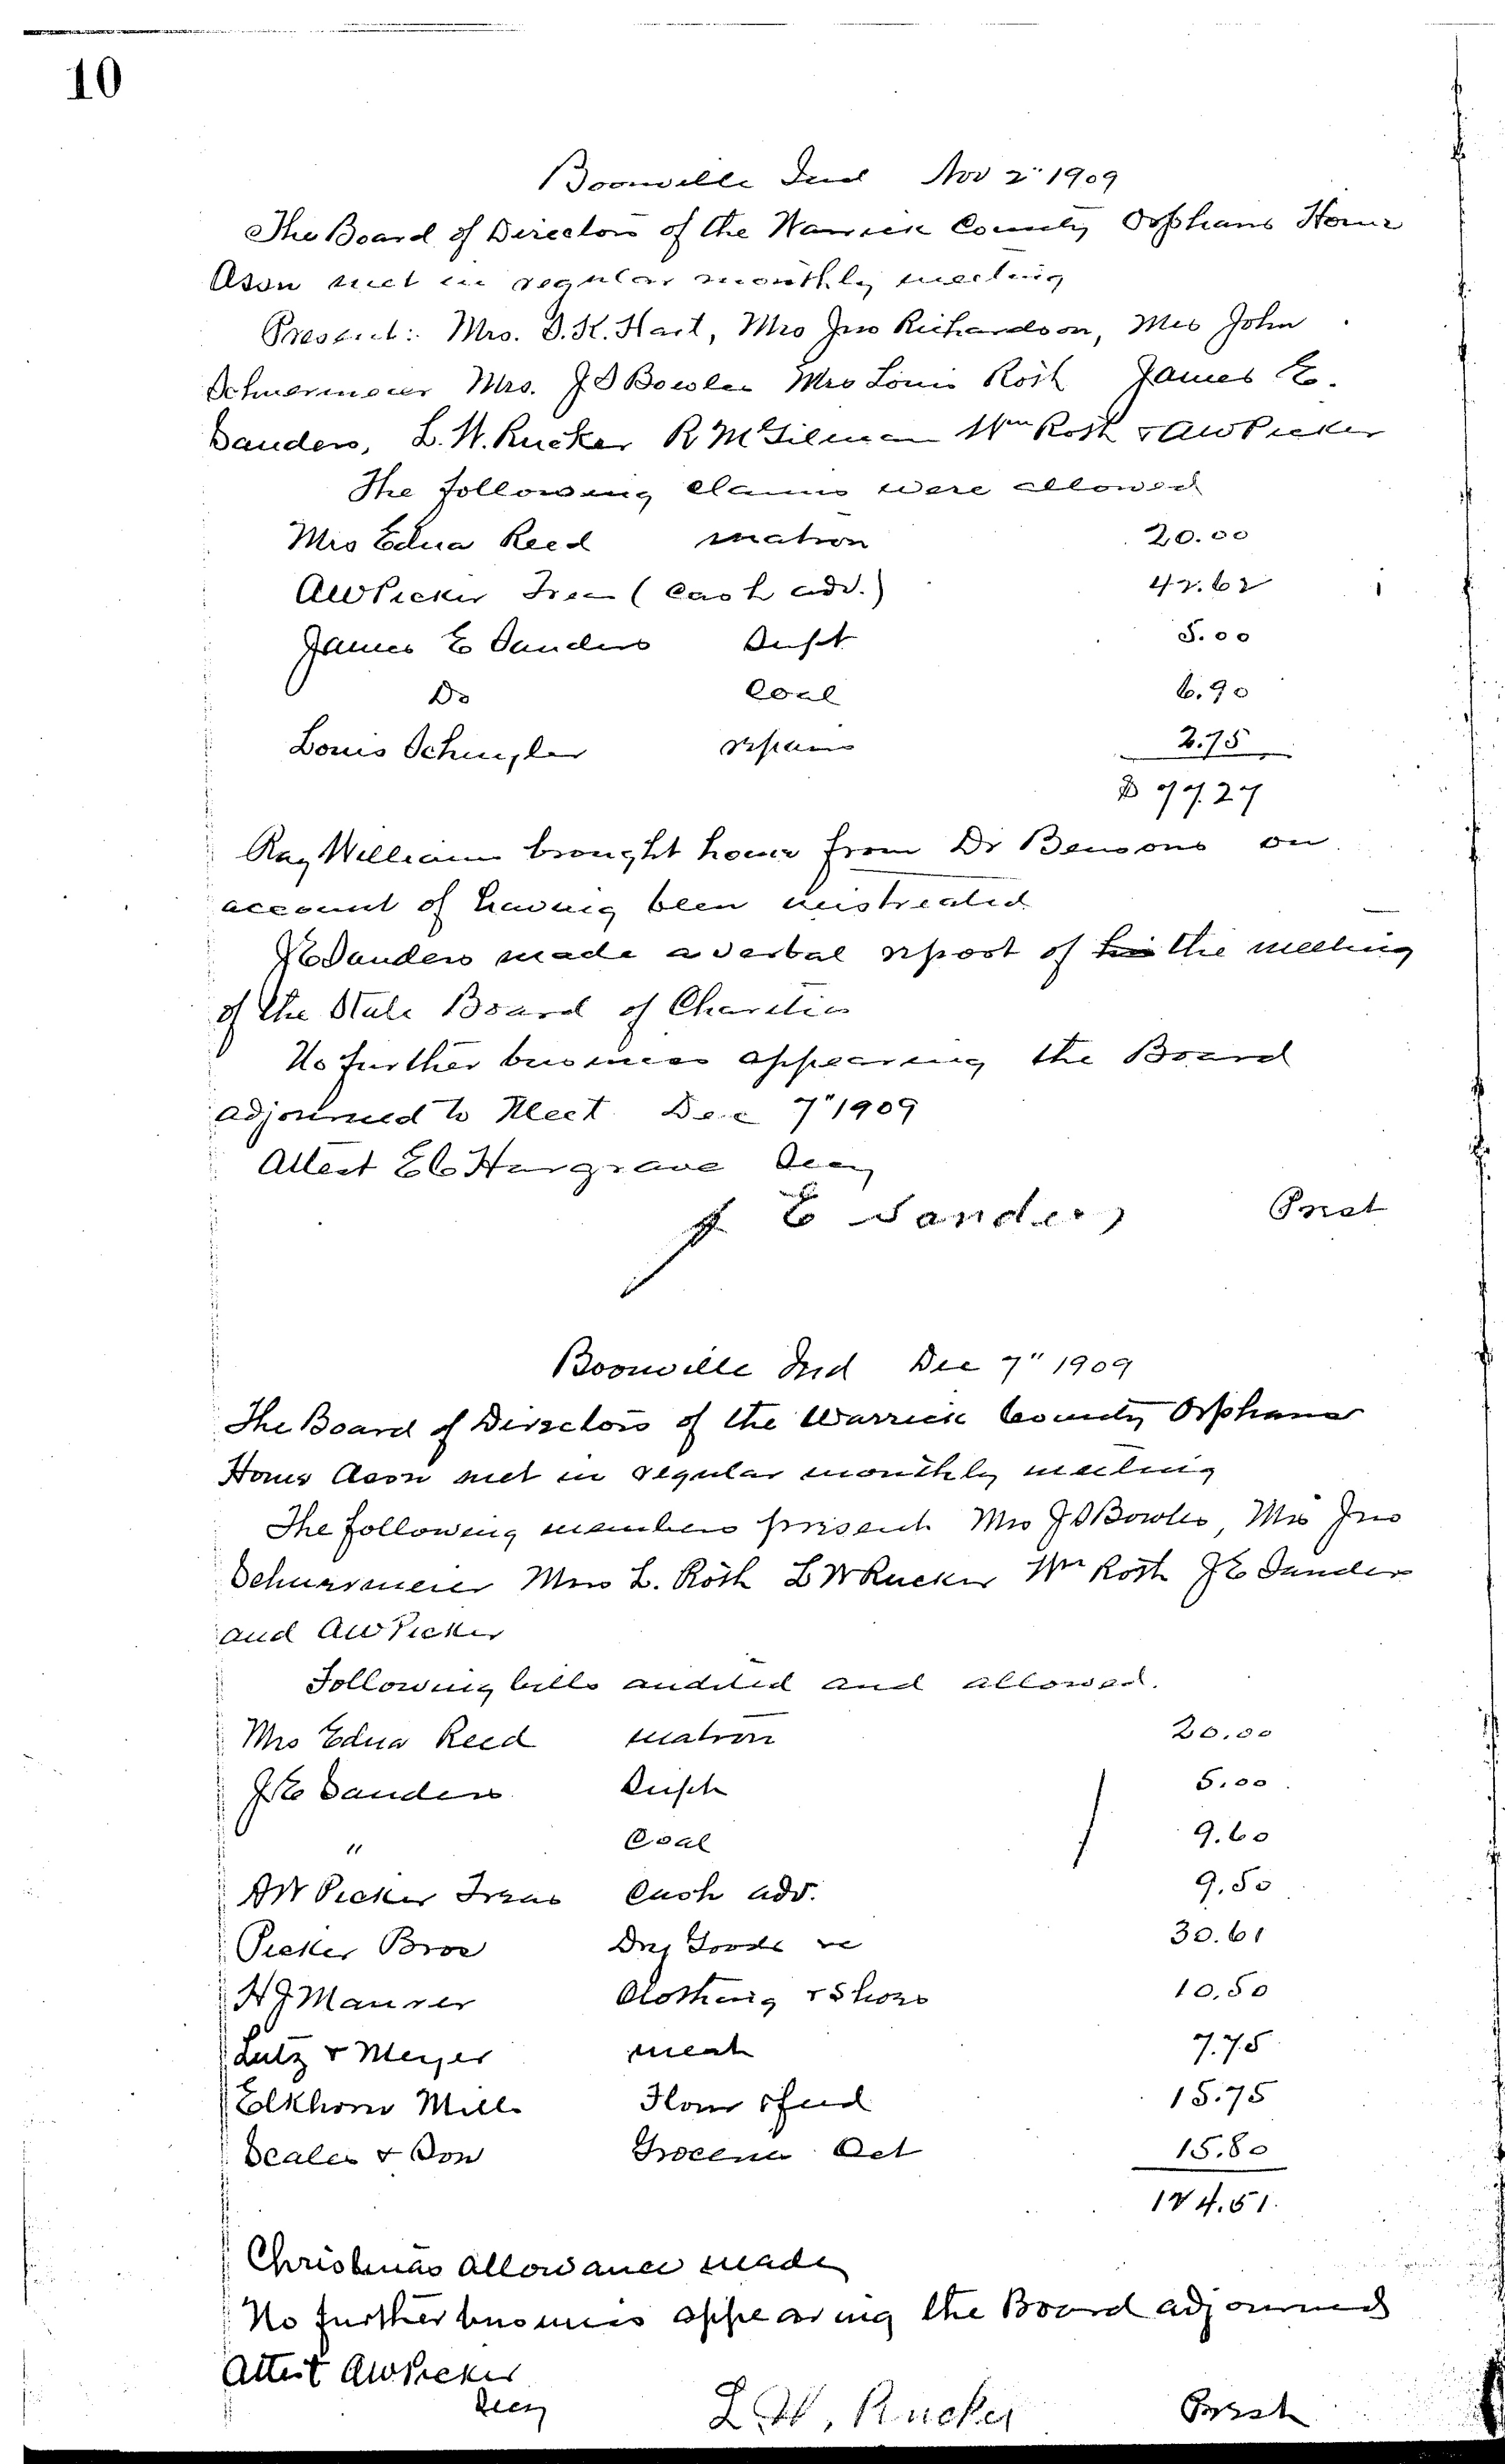 10
Boonville Ind Nov 2" 1909
The Board of Directors of the Warrick County Orphans Home
Assn met in regular monthly meeting
Present: Mrs. D. K. Hart, Mrs Jno Richardson, Mrs John
Schuermeier Mrs. J D Bowles Mrs Louis Roth James E.
Sanders, L. W. Rucker R M Tilman Wm Roth & AW Picker
The following claims were allowed
Mrs Edna Reed matron 20.00
AW Picker Treas (Cash adv.) 42.62
James E Sanders Supt 5.00
Do Coal 6.90
Louis repairs 2.75
$ 77.27
Ray Williams brought home from Dr Bensons on
account of having been mistreated
JE Sanders made a verbal report of the meeting
of the State Board of Charities
No further business appearing the Board
adjourned to Meet Dec 7" 1909
Attest E C Hargrave Secy
J E Sanders Prest
Boonville Ind Dec 7" 1909
The Board of Directors of the Warrick County Orphans
Home Assn met in regular monthly meeting
The following members present Mrs J D Bowles, Mrs Jno
Schuermeier Mrs L. Roth L W Rucker Wm Roth J E Sanders
and AW Picker
Following bills audited and allowed.
Mrs Edna Reed matron 20.00
J E Sanders Supt 5.00
" Coal 9.60
AW Picker Treas Cash adv. 9.50
Picker Bros Dry Goods 30.61
H J Maurer Clothing & Shoes 10.50
Lutz & Meyer meat 7.75
Elkhorn Mill Flour & feed 15.75
Scales & Son Groceries Oct 15.80
124.51.
Christmas allowance made
No further business appearing the Board adjourned
Attest AW Picker
Secy
L. W. Rucker Prest